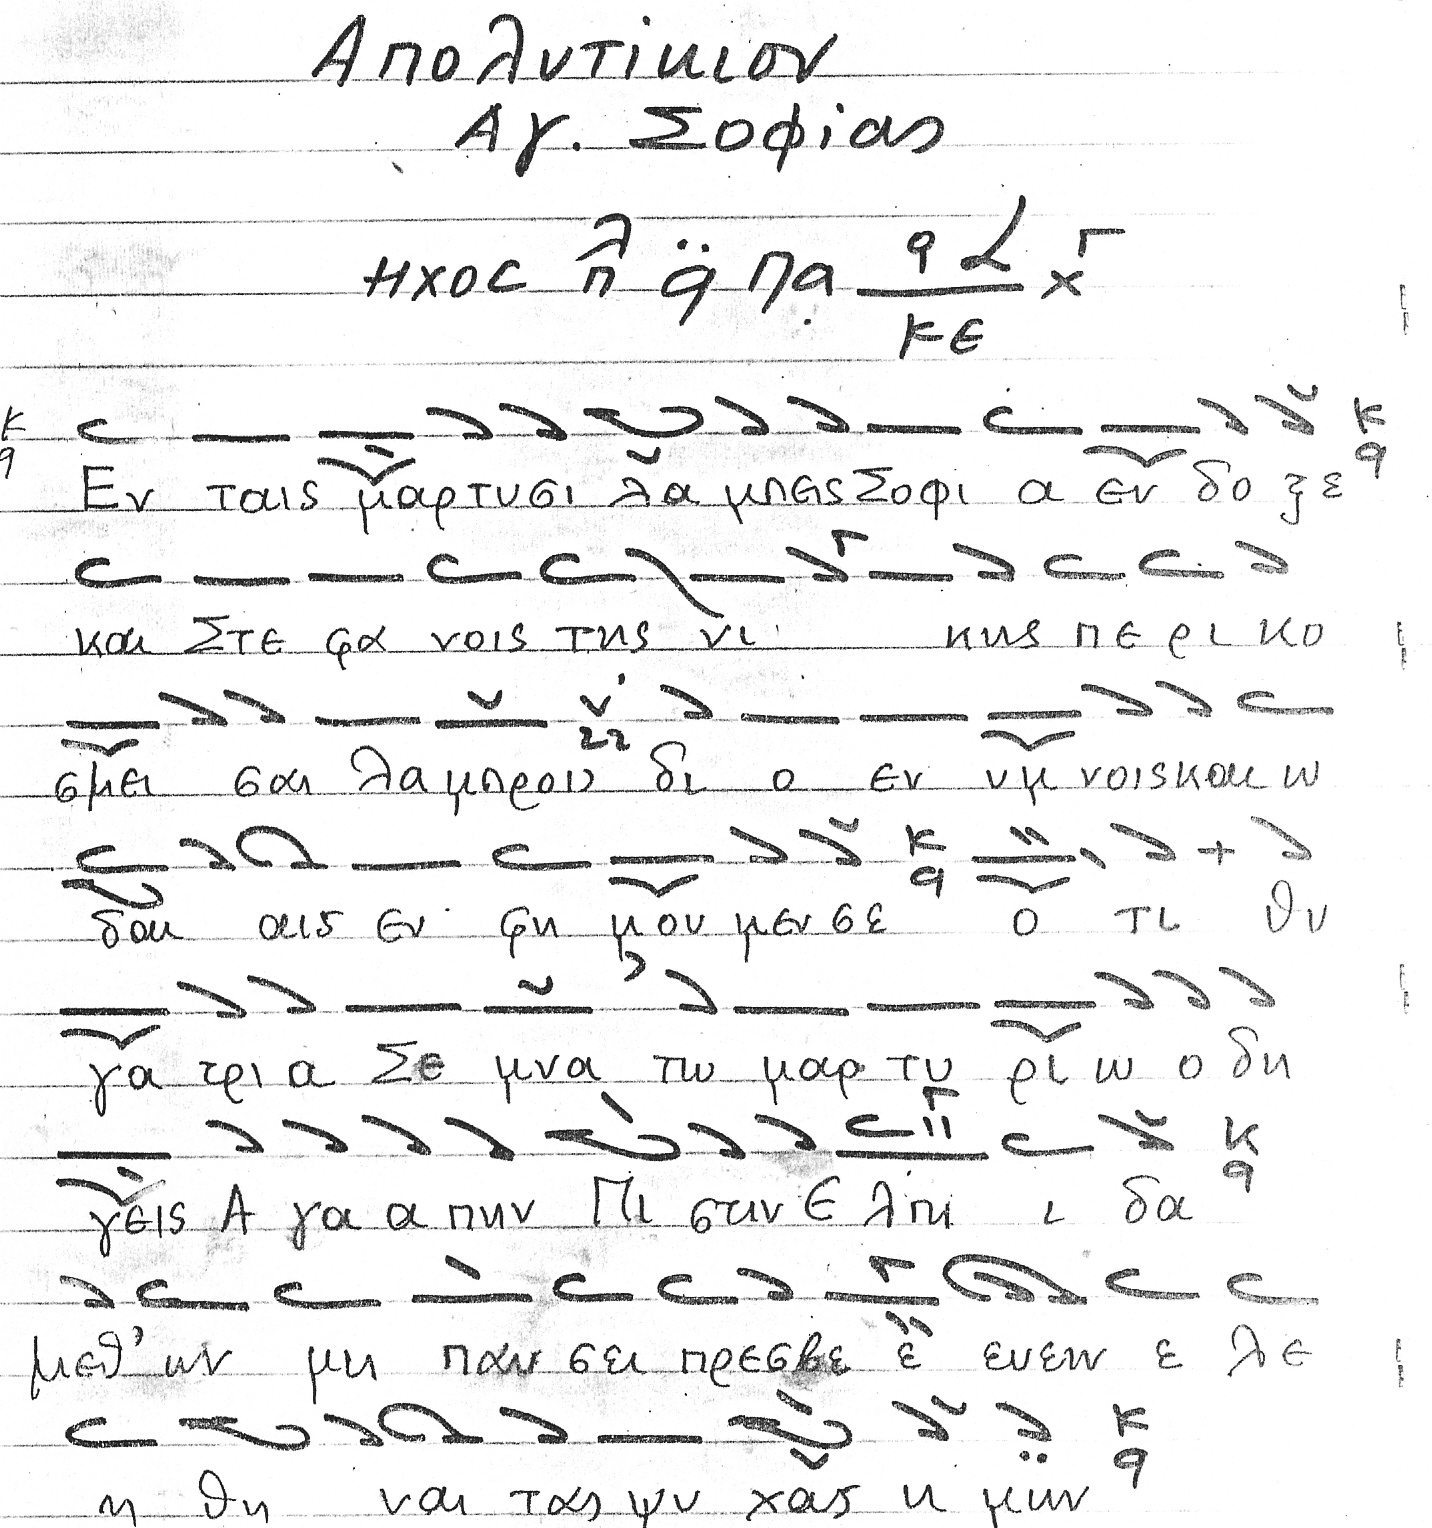 Απολυτίκιον
Αγ. Σοφίας
ΗΧΟC λ π α Πα
κε
Εν ταις μαρτυσι λα μπεις Σοφι α εν δο ξε
και Στε φα νοις της νι κης πε ρι κο
σμει σαι λαμπρου δι ο εν υμ νοις και ω
δαι αις εν φη μου μεν σε ο τι θυ
γα τρι α Σε μνα τω μαρ τυ ρι ω ο δη
γεις Α γα α πην Πι στιν Ε λπι ι δα
μεθ' ων μη παυ σει πρεσβε ε ευειν ε λε
η θη ναι τας ψυ χας η μων